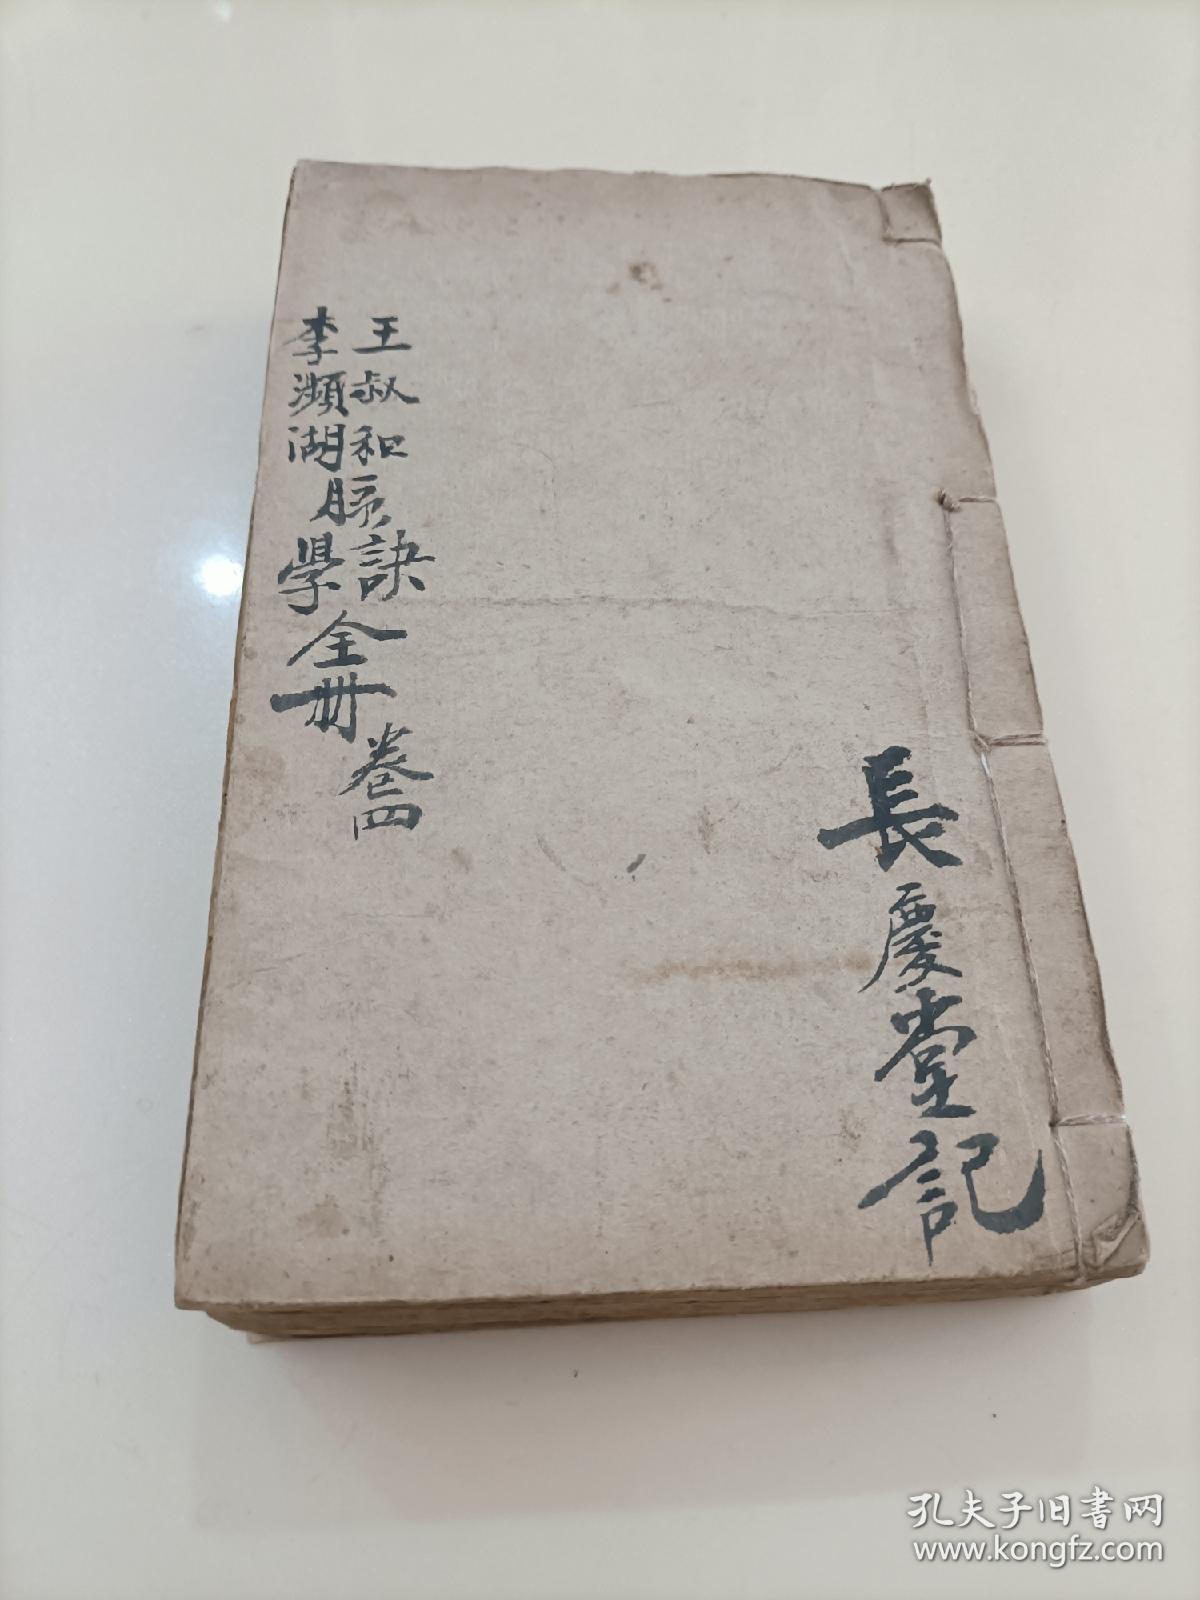 王叔和
李瀕湖
脈訣
學
全冊
卷四
長慶堂記
孔夫子旧書网
www.kongfz.com